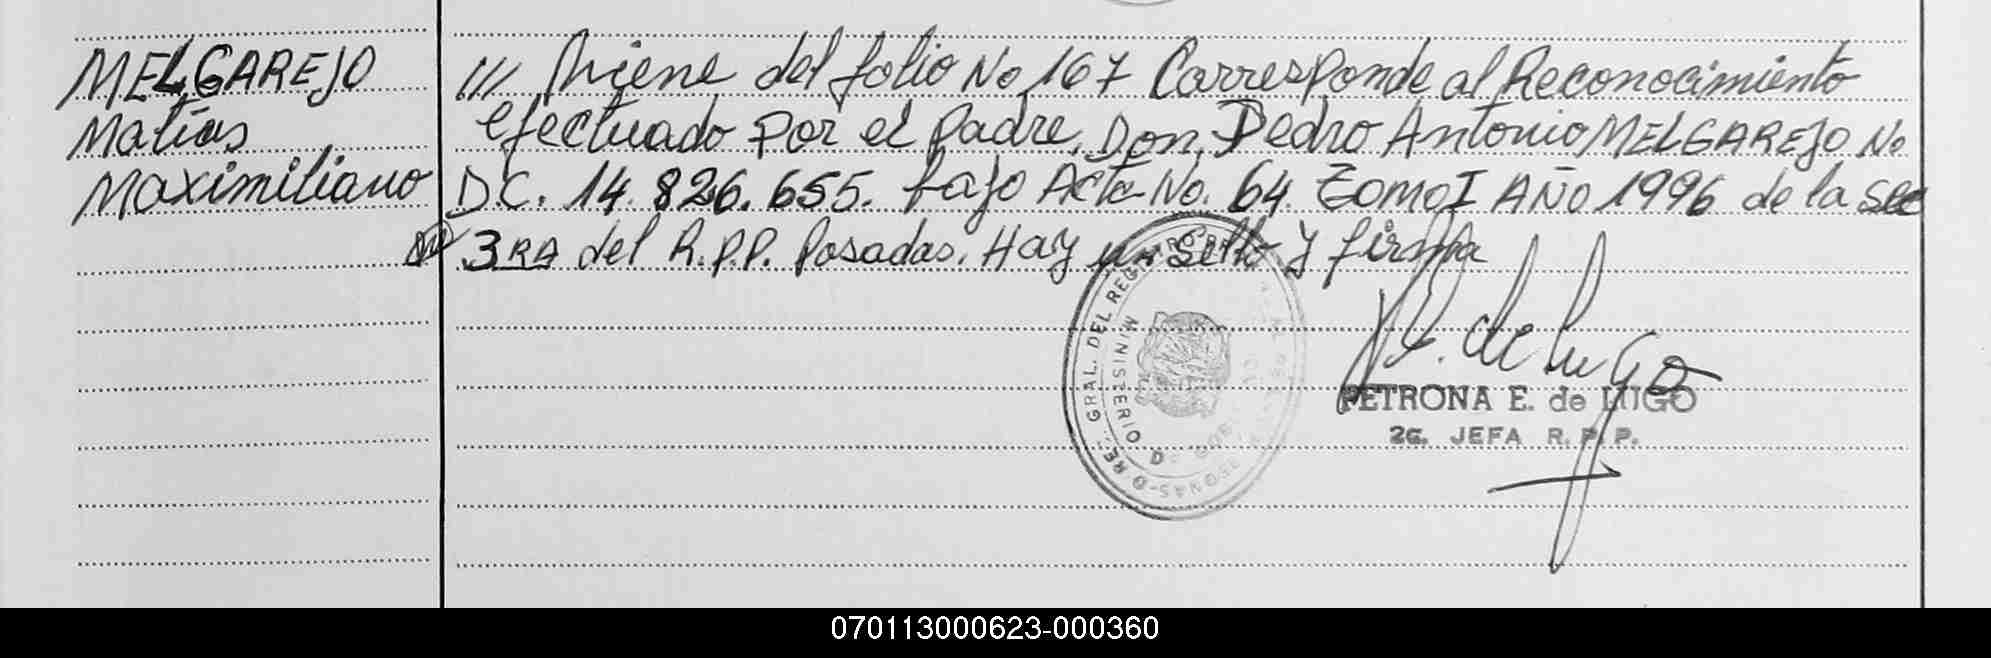 MELGAREJO
Matías
Maximiliano
/// Viene del folio No 167 Corresponde al Reconocimiento
efectuado por el Padre, Don, Pedro Antonio MELGAREJO No
D.C. 14.826.655. bajo Acta No. 64. Tomo I AÑO 1996 de la sec
3RA del R.P.P. Posadas. Hay un sello y firma
GRAL. DEL REGISTRO
MINISTERIO
E. de Lugo
PETRONA E. de LUGO
2G. JEFA R. P. P.
070113000623-000360